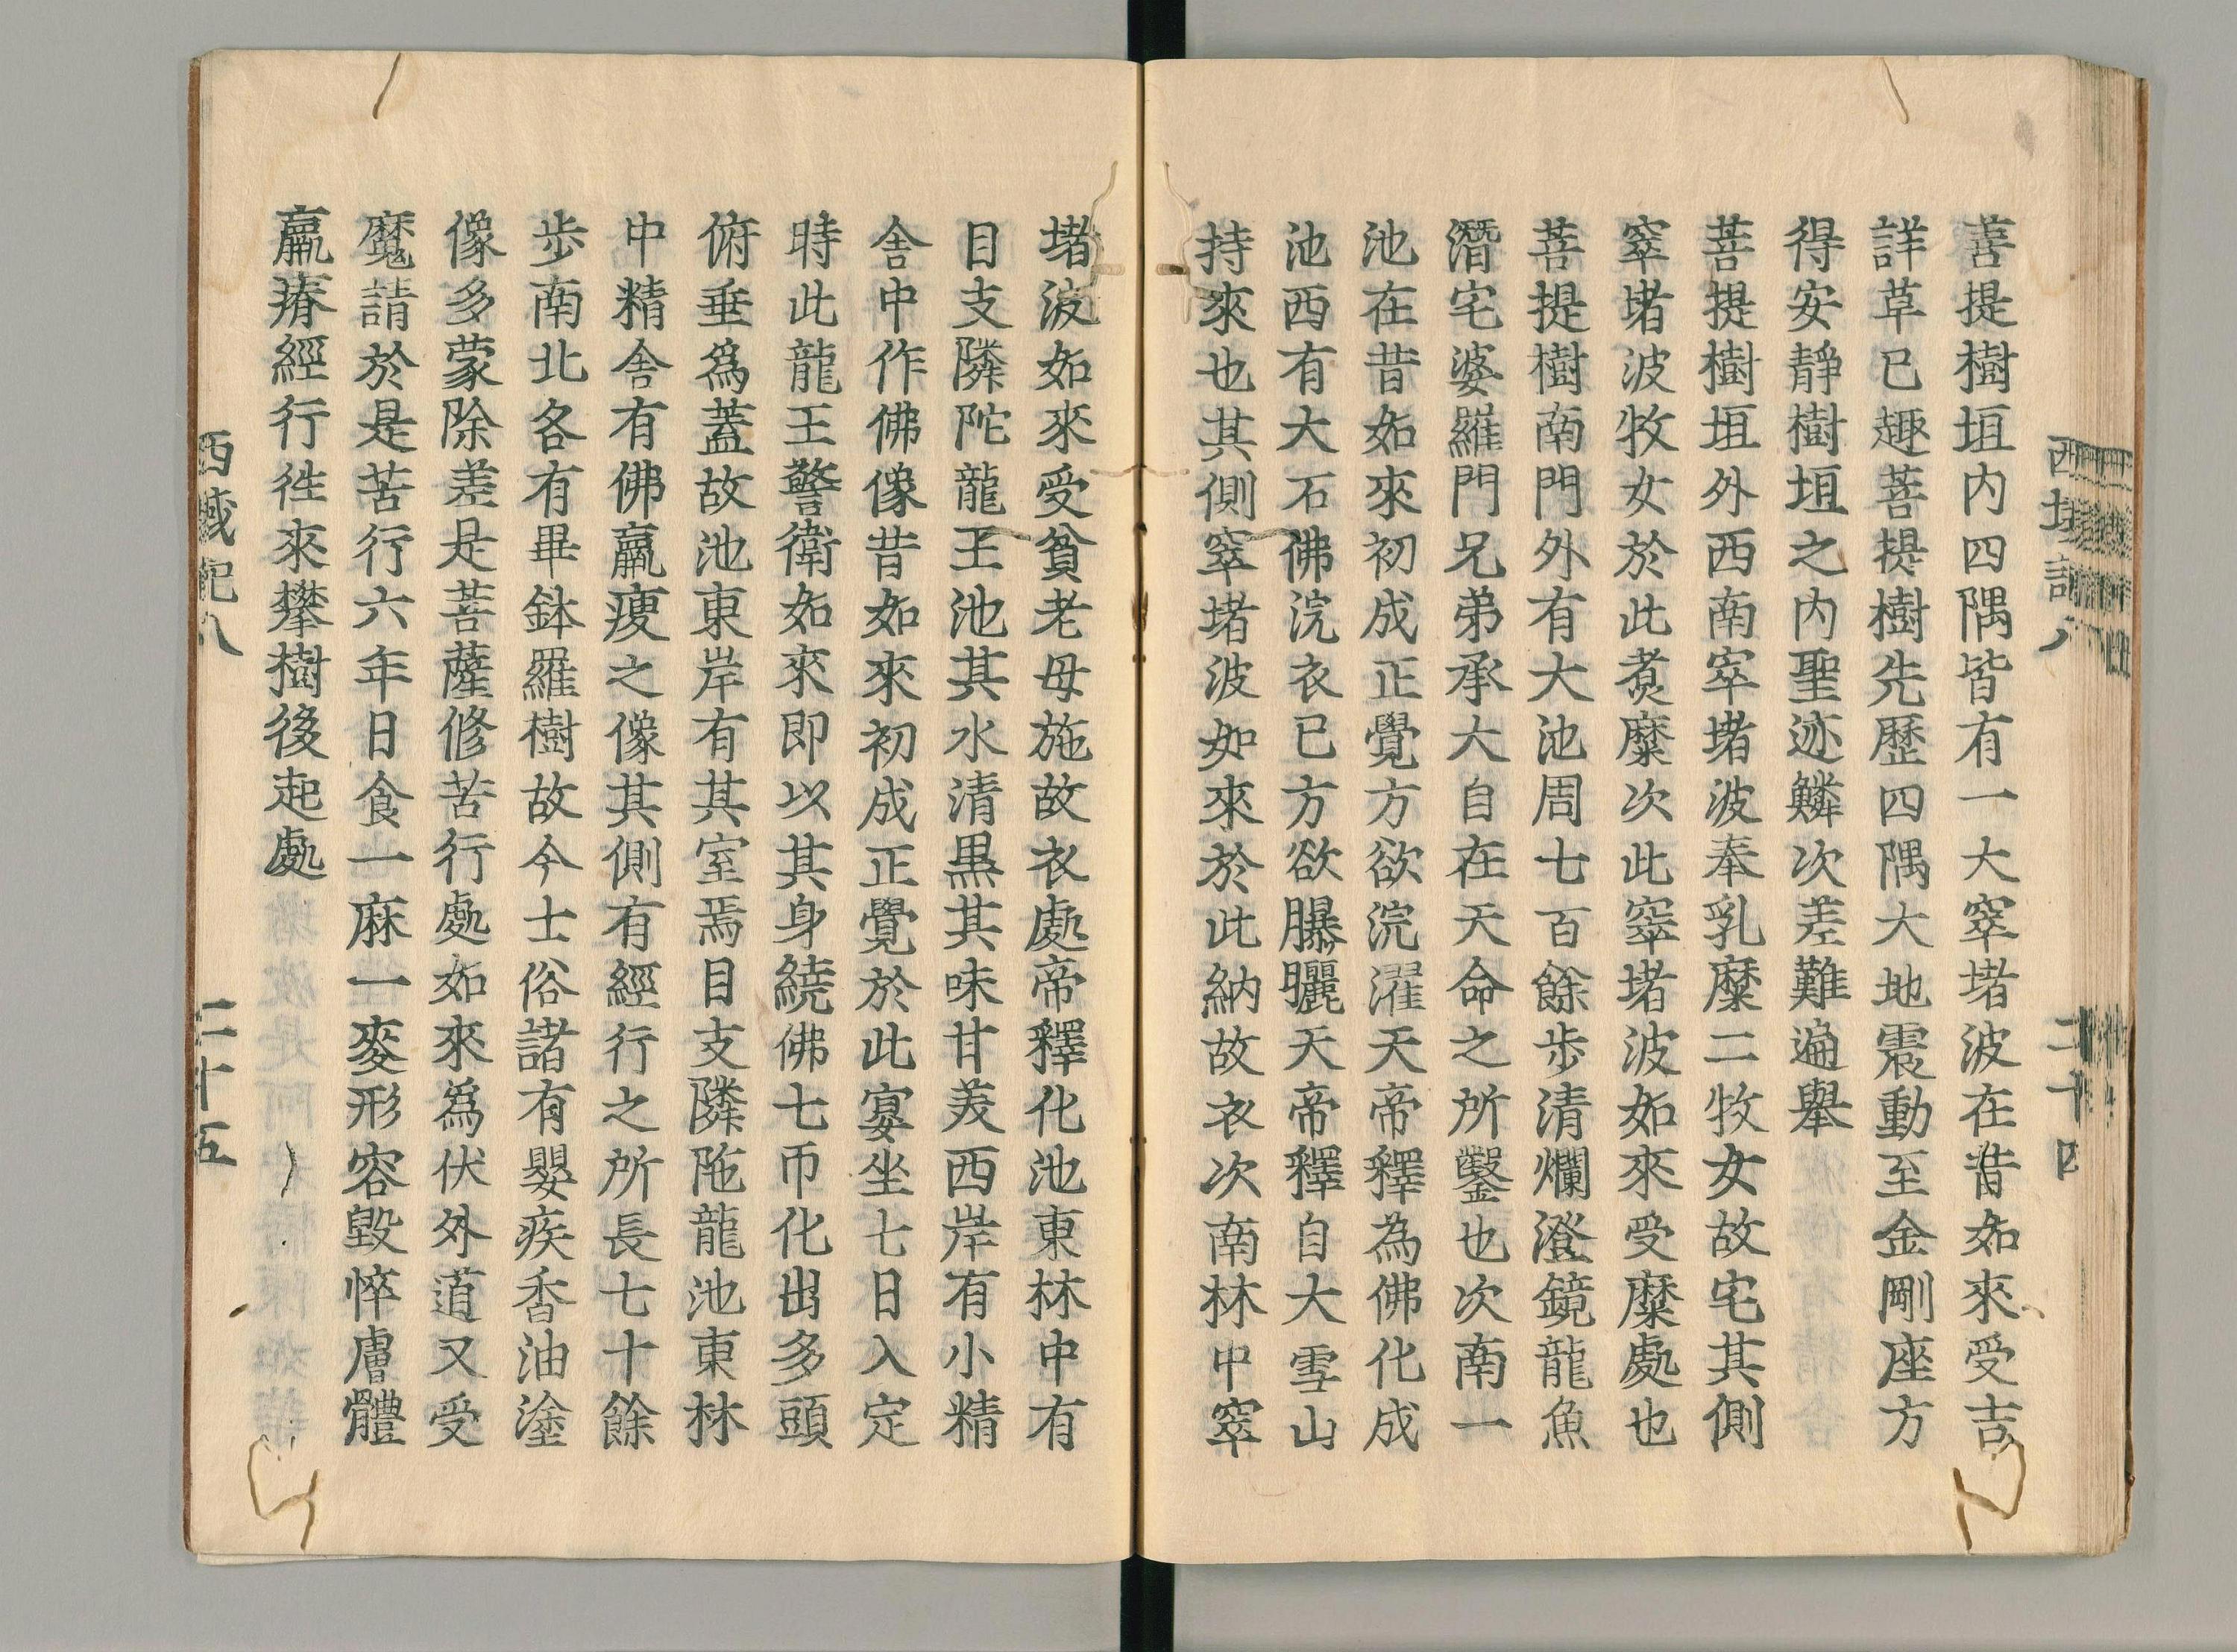 西域記八
二十四
菩提樹垣内四隅皆有一大窣堵波在昔如來受吉
詳草已趣菩提樹先歷四隅大地震動至金剛座方
得安靜樹垣之内聖迹鱗次差難遍舉
菩提樹垣外西南窣堵波奉乳糜二牧女故宅其側
窣堵波牧女於此煑糜次此窣堵波如來受糜處也
菩提樹南門外有大池周七百餘步清爛澄鏡龍魚
潛宅婆羅門兄弟承大自在天命之所鑿也次南一
池在昔如來初成正覺方欲浣濯天帝釋為佛化成
池西有大石佛浣衣已方欲曝曬天帝釋自大雪山
持來也其側窣堵波如來於此納故衣次南林中窣
堵波如來受貧老母施故衣處帝釋化池東林中有
目支隣陀龍王池其水清黒其味甘美西岸有小精
舍中作佛像昔如來初成正覺於此宴坐七日入定
時此龍王警衛如來即以其身繞佛七帀化出多頭
俯垂爲蓋故池東岸有其室焉目支隣陁龍池東林
中精舍有佛羸瘦之像其側有經行之所長七十餘
步南北各有畢鉢羅樹故今士俗諸有嬰疾香油塗
像多蒙除差是菩薩修苦行處如來爲伏外道又受
魔請於是苦行六年日食一麻一麥形容毀悴膚體
羸瘠經行往來攀樹後起處
西域記八
二十五